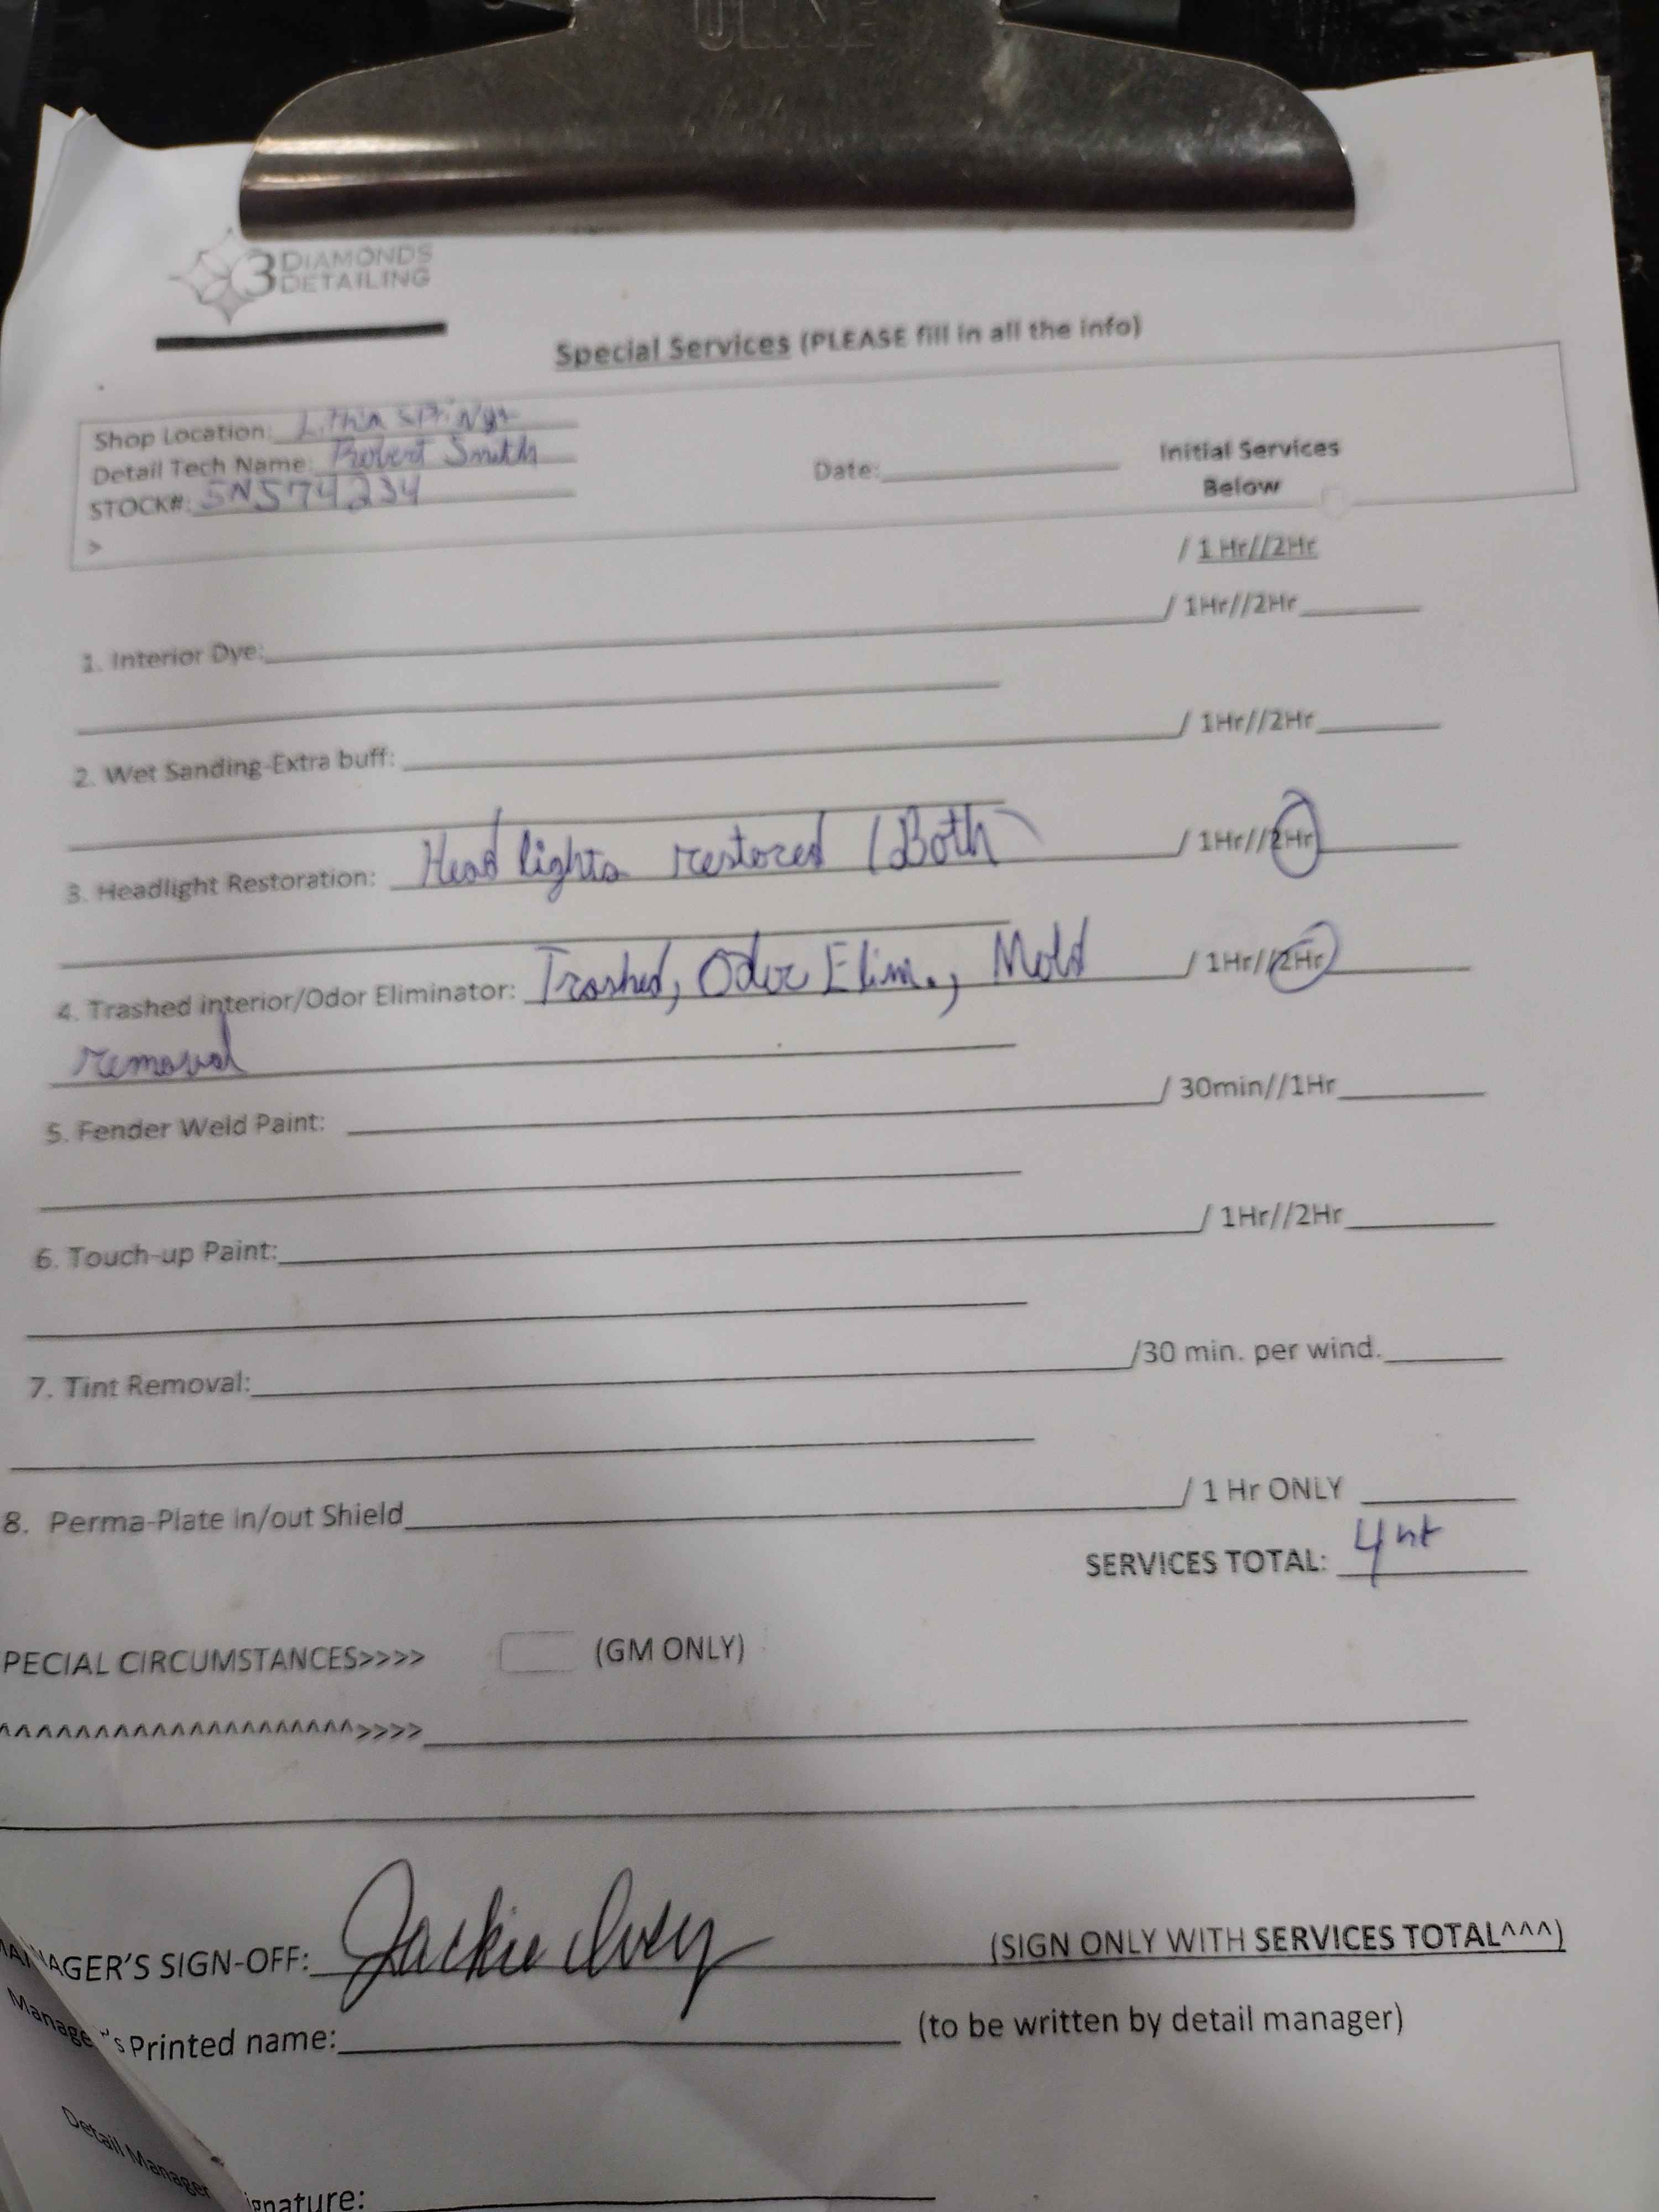 ULINE
3 DIAMONDS
DETAILING
Special Services (PLEASE fill in all the info)
Shop Location: Lithia Springs
Detail Tech Name: Robert Smith
Date:
Initial Services
Below
STOCK#: SN574234
>
/ 1 Hr//2Hr
1. Interior Dye: / 1Hr//2Hr
2. Wet Sanding-Extra buff: / 1Hr//2Hr
3. Headlight Restoration: Head lights restored (Both / 1Hr//2Hr
4. Trashed interior/Odor Eliminator: Trashed, Odor Elim., Mold / 1Hr//2Hr
removal
5. Fender Weld Paint: / 30min//1Hr
6. Touch-up Paint: / 1Hr//2Hr
7. Tint Removal: /30 min. per wind.
8. Perma-Plate in/out Shield / 1 Hr ONLY
SERVICES TOTAL: 4
PECIAL CIRCUMSTANCES>>>> (GM ONLY)
^^^^^^^^^^^^^^^^^^^^^>>>>
AGER'S SIGN-OFF: Jackie Ivey (SIGN ONLY WITH SERVICES TOTAL^^^)
's Printed name: (to be written by detail manager)
Manage
Detail Manager
ignature: